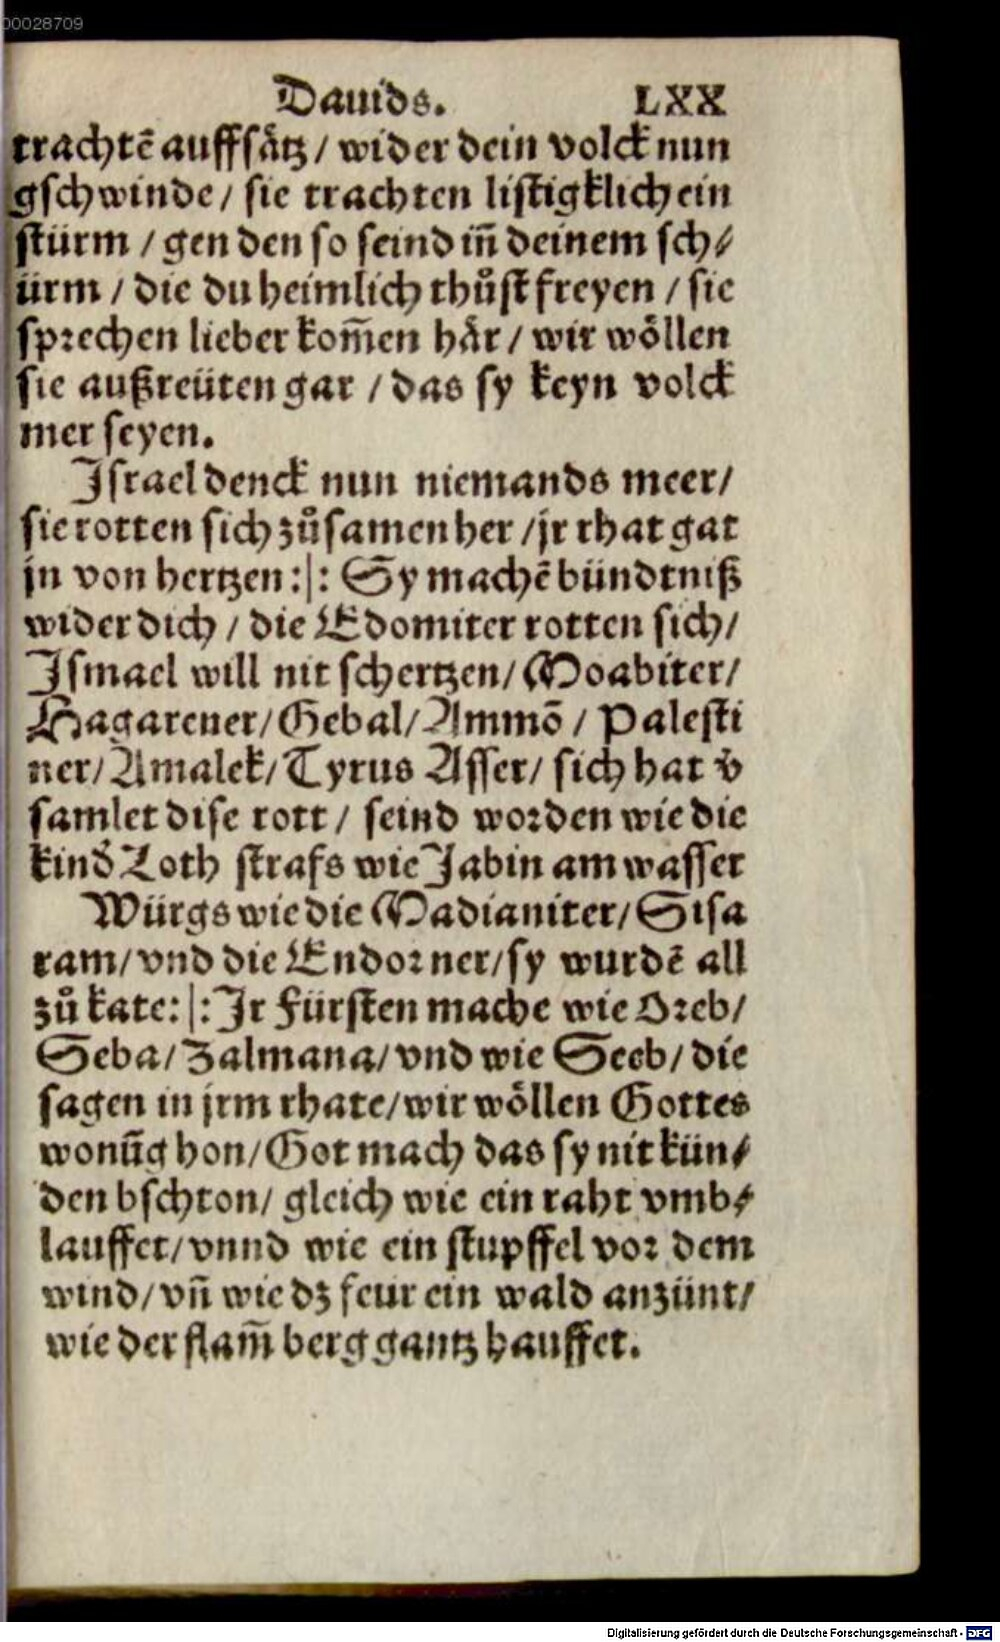 00028709
Dauids. LXX
trachtẽ auffsåtz / wider dein volck nun
gschwinde / sie trachten listigklich ein
stürm / gen den so seind iñ deinem sch⸗
ürm / die du heimlich thůst freyen / sie
sprechen lieber kom̃en hår / wir wöllen
sie außreüten gar / das sy keyn volck
mer seyen.
Israel denck nun niemands meer /
sie rotten sich zůsamen her / jr rhat gat
jn von hertzen :|: Sy machẽ bündtniß
wider dich / die Edomiter rotten sich /
Ismael will nit schertzen / Moabiter /
Hagarener / Gebal / Ammõ / Palesti
ner / Amalek / Tyrus Asser / sich hat v̄
samlet dise rott / seind worden wie die
kind̕ Loth strafs wie Jabin am wasser
Würgs wie die Madianiter / Sisa
ram / vnd die Endorner / sy wurdẽ all
zů kate :|: Ir Fürsten mache wie Oreb /
Seba / Zalmana / vnd wie Seeb / die
sagen in jrm rhate / wir wöllen Gottes
wonũg hon / Got mach das sy nit kün⸗
den bschton / gleich wie ein raht vmb⸗
lauffet / vnnd wie ein stupffel vor dem
wind / vñ wie dz feur ein wald anzünt /
wie der flam̃ berg gantz hauffet.
Digitalisierung gefördert durch die Deutsche Forschungsgemeinschaft - DFG